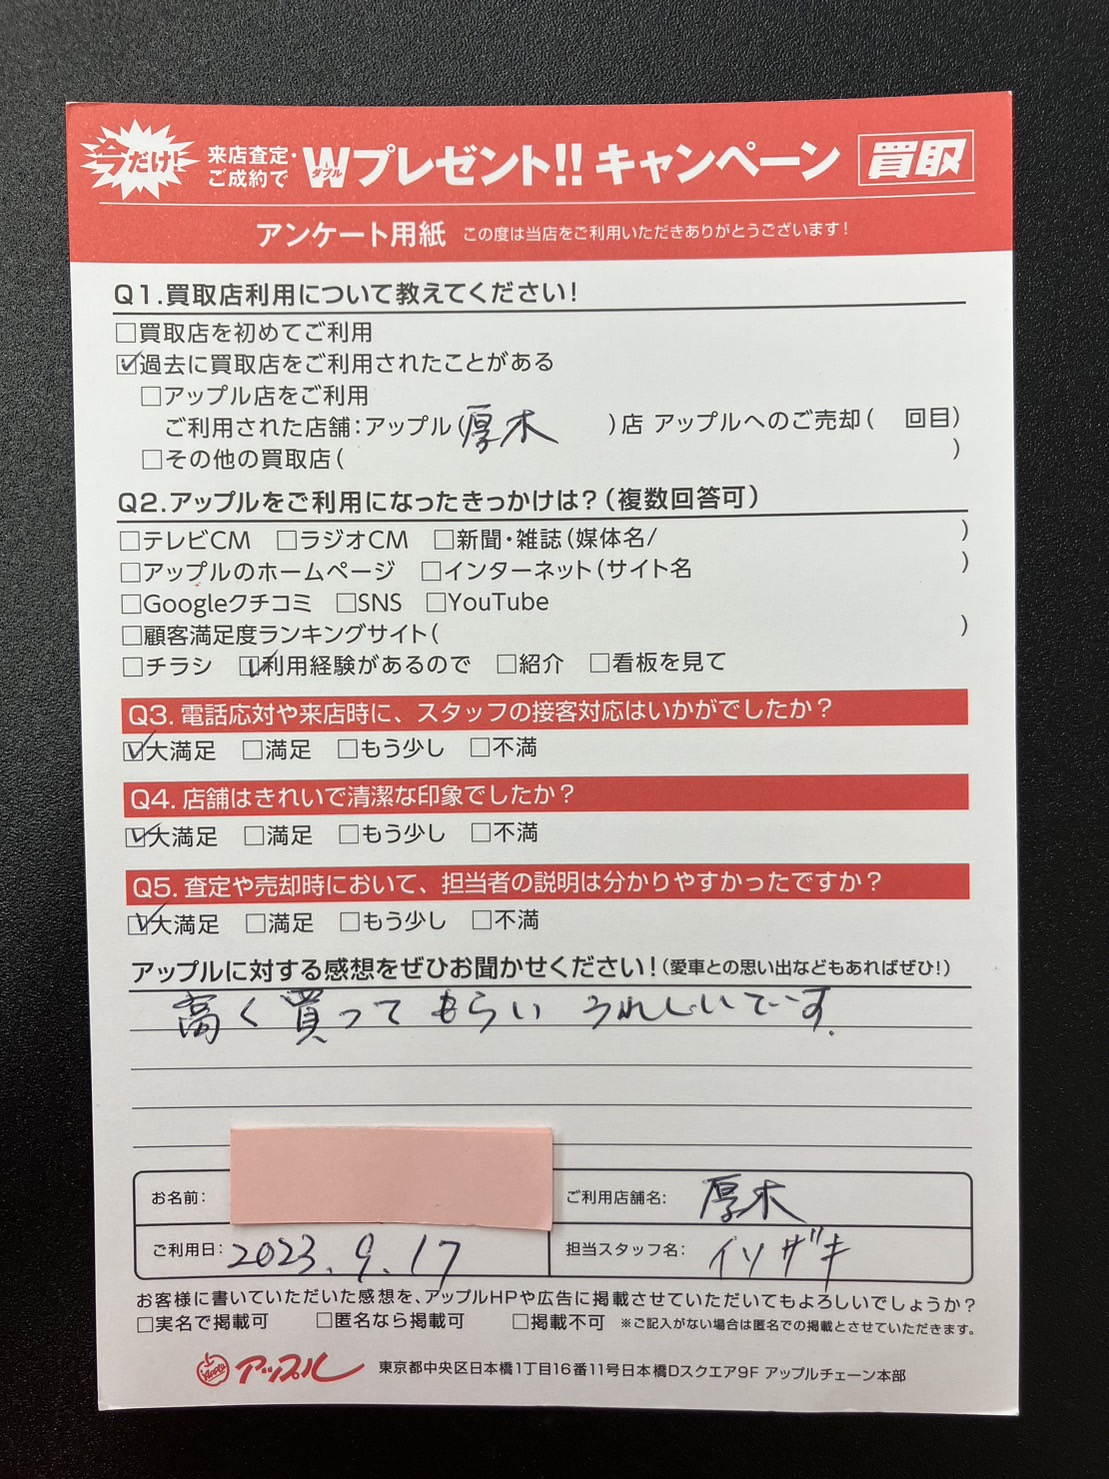 今だけ!
来店査定・
ご成約で
Wプレゼント!! キャンペーン 買取
ダブル
アンケート用紙 この度は当店をご利用いただきありがとうございます!
Q1.買取店利用について教えてください!
□買取店を初めてご利用
☑過去に買取店をご利用されたことがある
□アップル店をご利用
ご利用された店舗:アップル(厚木 )店 アップルへのご売却( 回目)
□その他の買取店( )
Q2.アップルをご利用になったきっかけは?(複数回答可)
□テレビCM □ラジオCM □新聞・雑誌(媒体名/ )
□アップルのホームページ □インターネット(サイト名 )
□Googleクチコミ □SNS □YouTube
□顧客満足度ランキングサイト( )
□チラシ ☑利用経験があるので □紹介 □看板を見て
Q3. 電話応対や来店時に、スタッフの接客対応はいかがでしたか?
☑大満足 □満足 □もう少し □不満
Q4. 店舗はきれいで清潔な印象でしたか?
☑大満足 □満足 □もう少し □不満
Q5. 査定や売却時において、担当者の説明は分かりやすかったですか?
☑大満足 □満足 □もう少し □不満
アップルに対する感想をぜひお聞かせください!(愛車との思い出などもあればぜひ!)
高く買ってもらい うれしいです.
お名前: ご利用店舗名: 厚木
ご利用日: 2023.9.17 担当スタッフ名: イソザキ
お客様に書いていただいた感想を、アップルHPや広告に掲載させていただいてもよろしいでしょうか?
□実名で掲載可 □匿名なら掲載可 □掲載不可 ※ご記入がない場合は匿名での掲載とさせていただきます。
Apple アップル 東京都中央区日本橋1丁目16番11号日本橋Dスクエア9F アップルチェーン本部